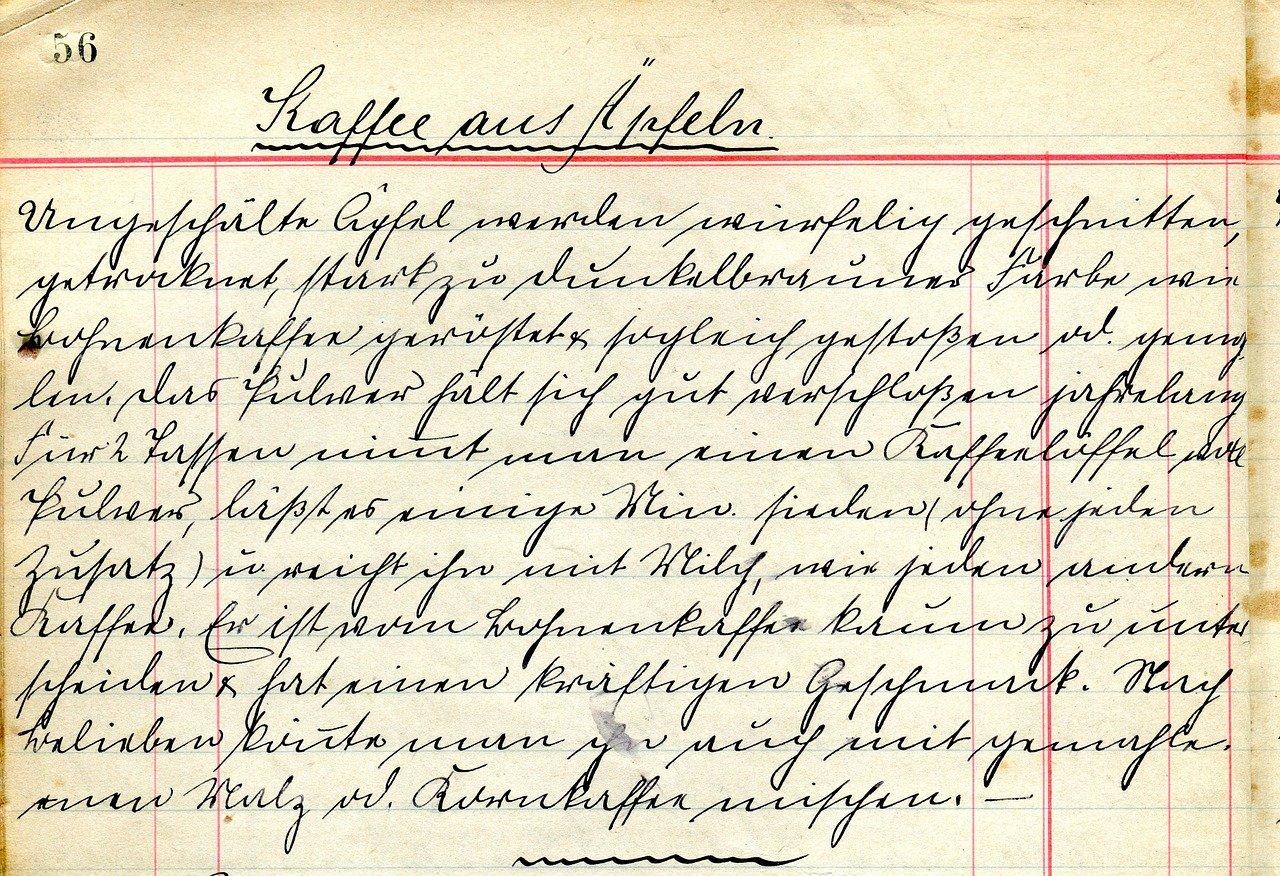 56
Kaffee aus Äpfeln.
Ungeschälte Äpfel werden würfelig geschnitten,
getrocknet, stark zu dunkelbrauner Farbe wie
Bohnenkaffee geröstet & sogleich gestoßen od. gemah
len. Das Pulver hält sich gut verschloßen jahrelang
Für 2 Tassen nim̅t man einen Kaffeelöffel voll
Pulver, läßt es einige Min. sieden (ohne jeden
Zusatz) u. reicht ihn mit Milch, wie jeden andern
Kaffee. Er ist vom Bohnenkaffee kaum zu unter
scheiden & hat einen kräftigen Geschmack. Nach
Belieben kön̅te man ihn auch mit gemahle.
enen Malz od. Kornkaffee mischen. —